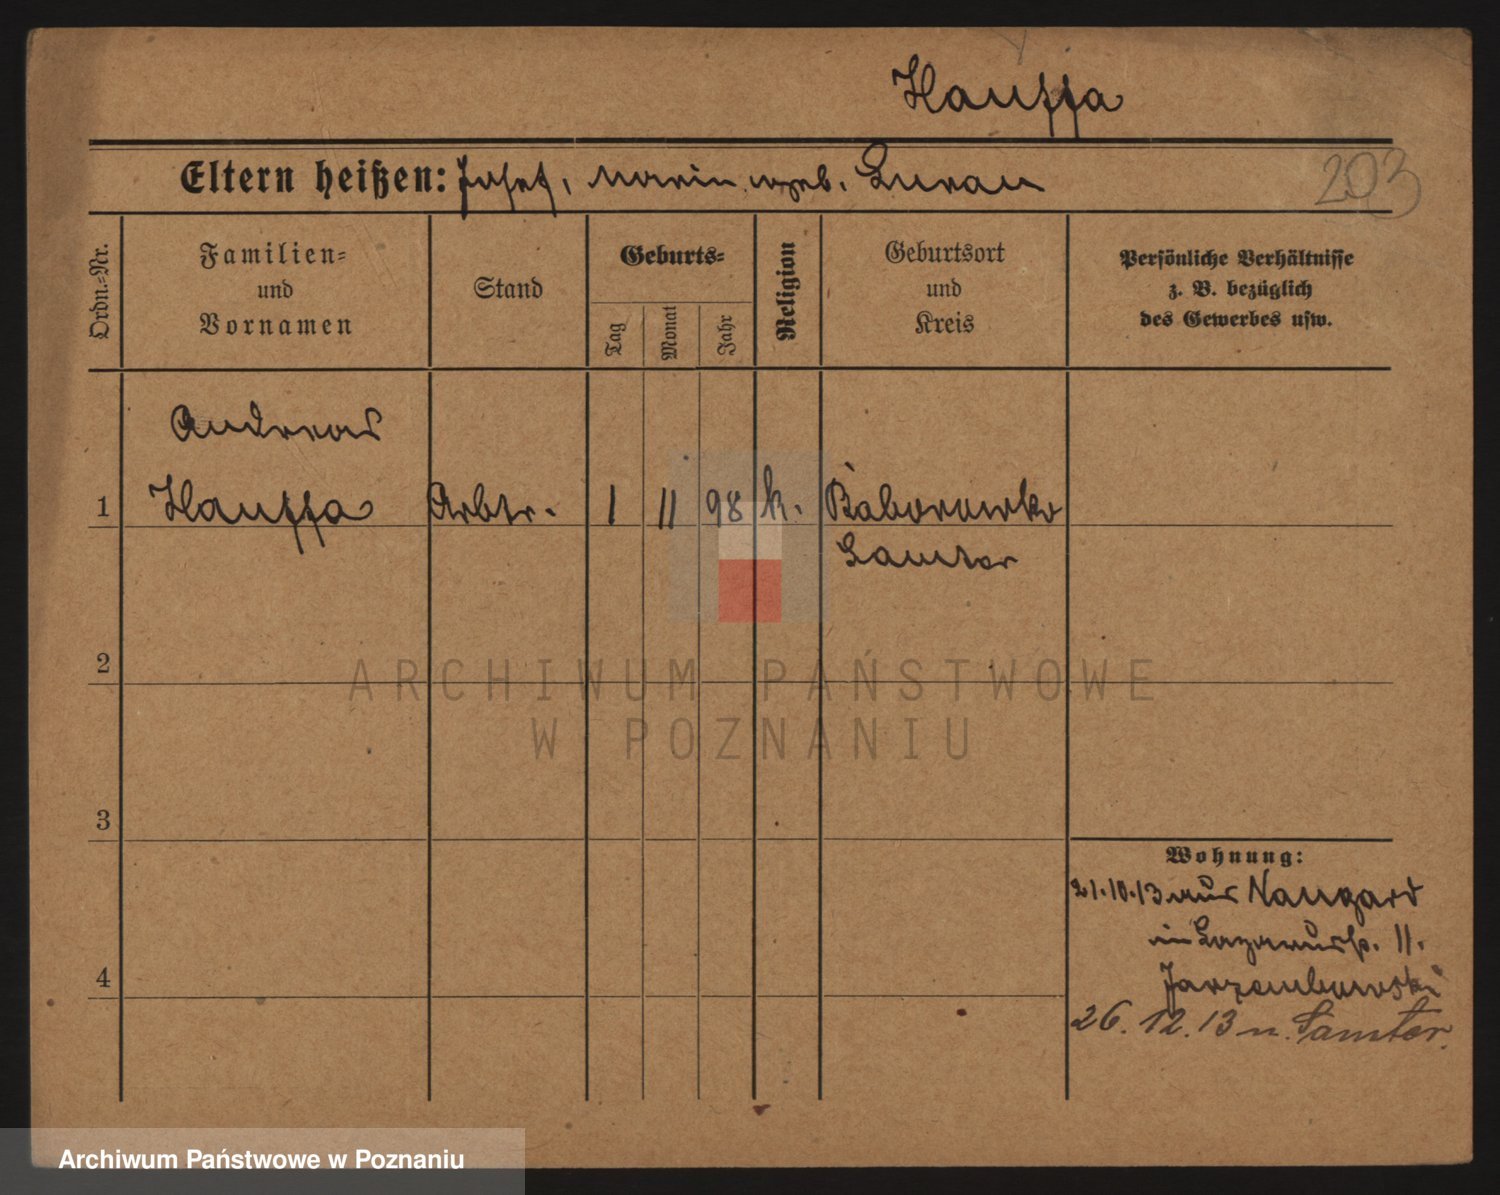 Hauffa
Eltern heißen: Josef, Maria geb. Luran
203
Ordn.-Nr.
Familien-
und
Vornamen
Stand
Geburts-
Tag
Monat
Jahr
Religion
Geburtsort
und
Kreis
Persönliche Verhältnisse
z. B. bezüglich
des Gewerbes usw.
Andreas
1 Hauffa Arbtr. 1 11 98 k. Baborowko
Samter
2
3
4
Wohnung:
21.10.13 aus Naugard
11.
Jarzembowski
26.12.13 n. Samter.
ARCHIWUM PAŃSTWOWE
W POZNANIU
Archiwum Państwowe w Poznaniu